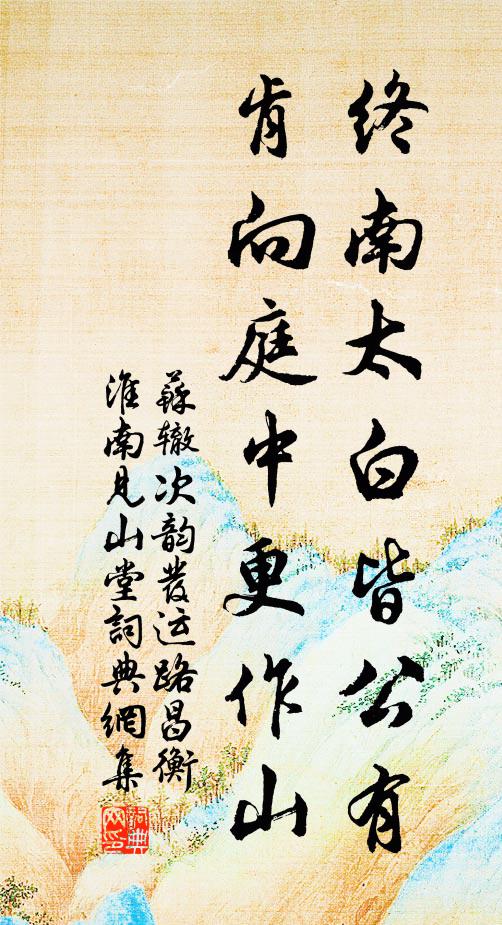 終南太白皆公有
肯向庭中更作山
蘇轍次韵發运路昌衡
淮南見山堂詞典網集
詞典
网印